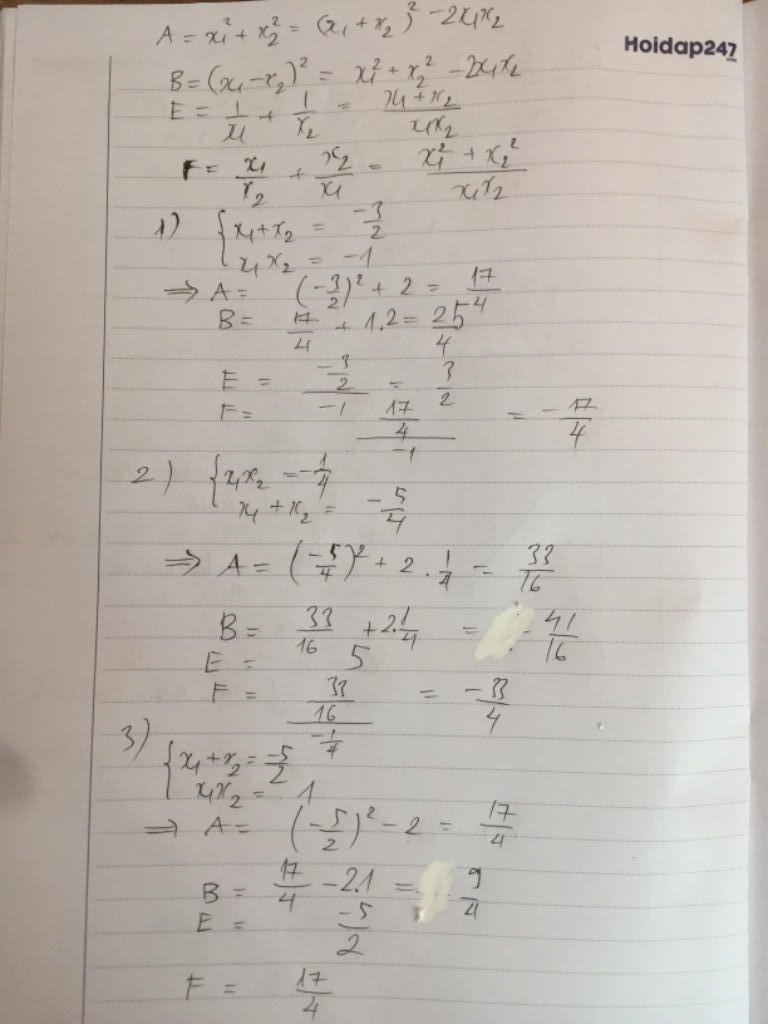 A = x₁² + x₂² = (x₁ + x₂)² - 2x₁x₂
Hoidap247
B = (x₁ - x₂)² = x₁² + x₂² - 2x₁x₂
E = 1/x₁ + 1/x₂ = (x₁ + x₂)/(x₁x₂)
F = x₁/x₂ + x₂/x₁ = (x₁² + x₂²)/(x₁x₂)
1) { x₁ + x₂ = -3/2
x₁x₂ = -1
⇒ A = (-3/2)² + 2 = 17/4
B = 17/4 + 1.2 = 25/4
E = (-3/2)/(-1) = 3/2
F = (17/4)/(-1) = -17/4
2) { x₁x₂ = -1/4
x₁ + x₂ = -5/4
⇒ A = (-5/4)² + 2 . 1/4 = 33/16
B = 33/16 + 2.1/4 = - 41/16
E = 5
F = (33/16)/(-1/4) = -33/4
3) { x₁ + x₂ = -5/2
x₁x₂ = 1
⇒ A = (-5/2)² - 2 = 17/4
B = 17/4 - 2.1 = 9/4
E = -5/2
F = 17/4